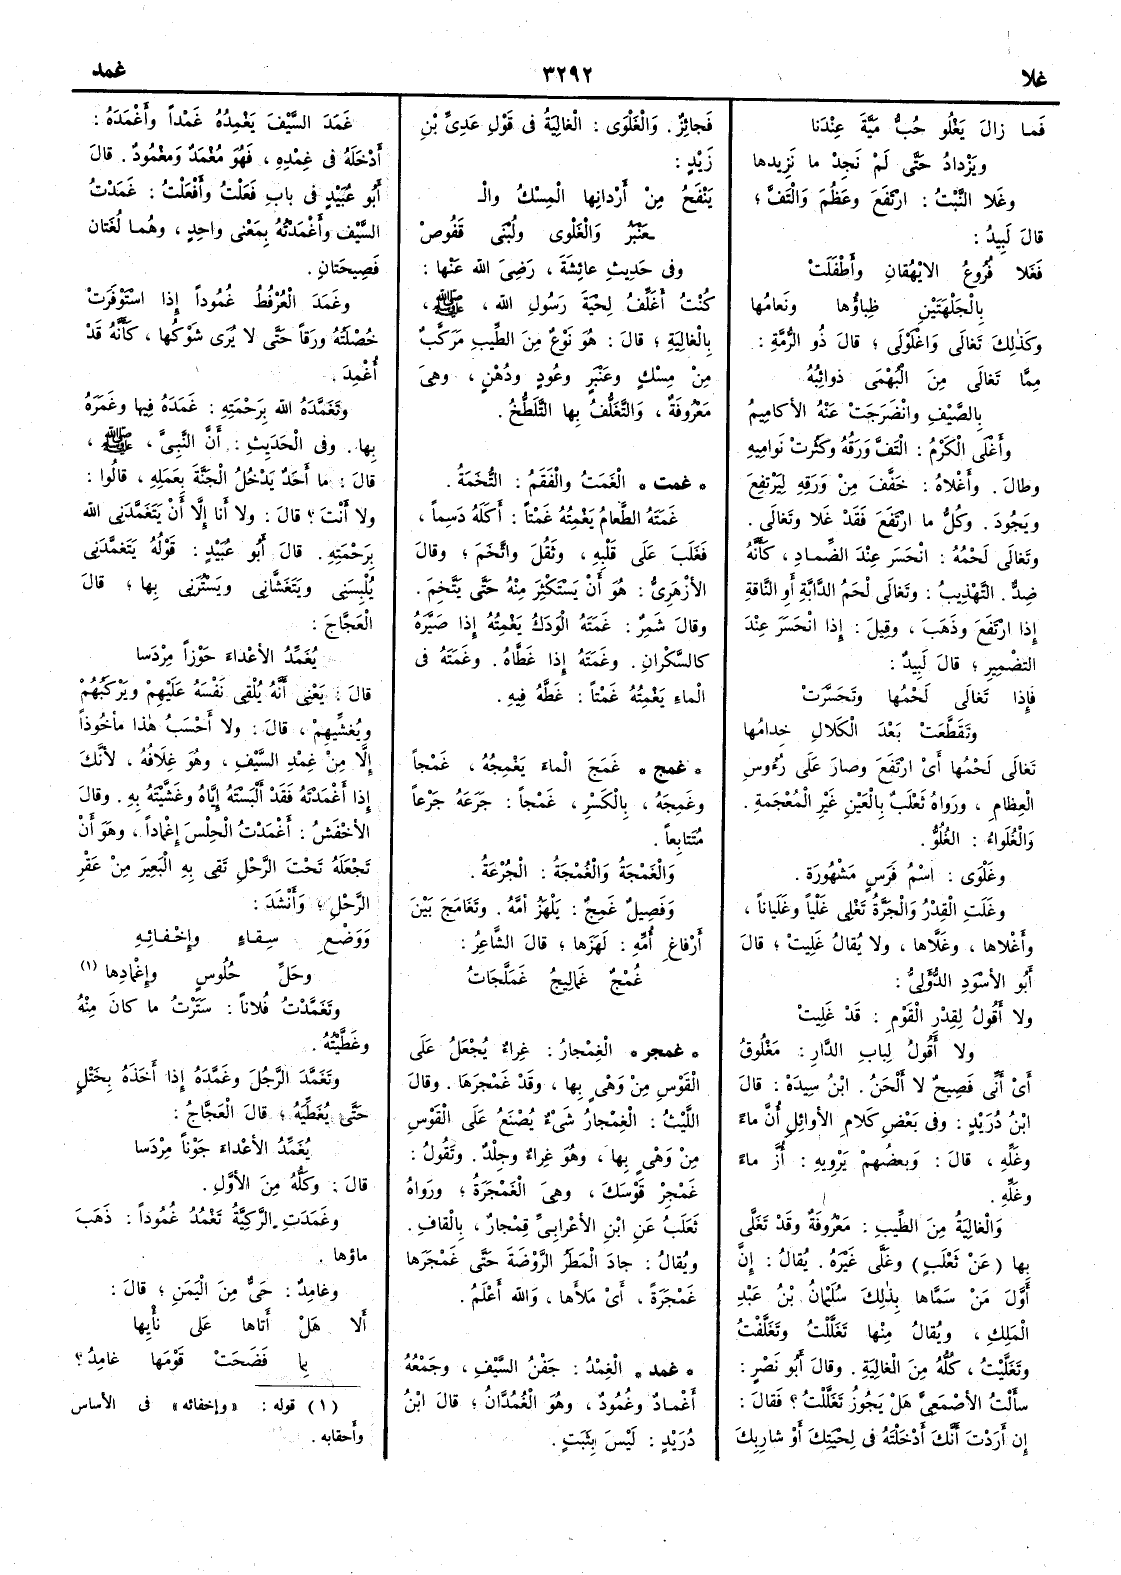 غلا
٣٢٩٢
غمد
فَما زالَ يَغْلُو حُبُّ مَيَّةَ عِنْدَنا
ويَزْدادُ حَتَّى لَمْ نَجِدْ ما نَزِيدها
وغَلا النَّبْتُ : ارْتَفَعَ وعَظُمَ وَالْتَفَّ ؛
قالَ لَبِيدٌ :
فَغَلا فُرُوعُ الايْهُقانِ وأَطْفَلَتْ
بِالْجَلْهَتَيْنِ ظِباؤُها ونَعامُها
وكَذٰلِكَ تَغالَى وَاغْلَوْلَى ؛ قالَ ذُو الرُّمَّةِ :
مِمَّا تَغالَى مِنَ الْبُهْمَى ذَوائِبُهُ
بِالصَّيْفِ وانْضَرَجَتْ عَنْهُ الأكامِيمُ
وأَغْلَى الْكَرْمُ : الْتَفَّ وَرَقُهُ وكَثُرَتْ نَوامِيهِ
وطالَ . وأَغْلاهُ : خَفَّفَ مِنْ وَرَقِهِ لِيَرْتَفِعَ
ويَجُودَ . وكُلُّ ما ارْتَفَعَ فَقَدْ غَلا وتَغالَى .
وتَغالَى لَحْمُهُ : انْحَسَر عِنْدَ الضِّمادِ ، كَأَنَّهُ
ضِدٌّ . التَّهْذِيبُ : وتَغالَى لَحْمُ الدَّابَّةِ أَوِ النَّاقَةِ
إذا ارْتَفَعَ وذَهَبَ ، وقِيلَ : إذا انْحَسَرَ عِنْدَ
التضْمِيرِ ؛ قالَ لَبِيدٌ :
فَإذا تَغالَى لَحْمُها وتَحَسَّرَتْ
وتَقَطَّعَتْ بَعْدَ الْكَلالِ خِدامُها
تَغالَى لَحْمُها أَىْ ارْتَفَعَ وصارَ عَلَى رُءُوسِ
الْعِظامِ ، ورَواهُ ثَعْلَبٌ بِالْعَيْنِ غَيْرِ الْمُعْجَمَةِ .
وَالْغُلَواءُ : الْغُلُوُّ .
وغَلْوَى : اسْمُ فَرَسٍ مَشْهُورَة .
وغَلَتِ الْقِدْرُ وَالْجَرَّةُ تَغْلِى غَلْياً وغَلَياناً ،
وأَغْلاها ، وغَلَّاها ، ولا يُقالُ غَلِيتْ ؛ قالَ
أَبُو الأسْوَدِ الدُّؤَلِىُّ :
ولا أَقُولُ لِقِدْرِ الْقَوْمِ : قَدْ غَلِيتْ
ولا أَقُولُ لِبابِ الدَّارِ : مَغْلُوقُ
أَىْ أَنِّى فَصِيحٌ لا أَلْحَنُ . ابْنُ سِيدَهْ : قالَ
ابْنُ دُرَيْدٍ : وفى بَعْضِ كَلامِ الأوائِلِ أَنَّ ماءً
وغَلِّهِ ، قالَ : وَبعضُهمْ يَرْوِيهِ : أُزَّ ماءً
وغَلِّهِ .
وَالْغالِيَةُ مِنَ الطِّيبِ : مَعْرُوفَةٌ وقَدْ تَغَلَّى
بِها ( عَنْ ثَعْلَبٍ ) وغَلَّى غَيْرَهُ . يُقالُ : إنَّ
أَوَّلَ مَنْ سَمَّاها بِذٰلِكَ سُلَيْمانُ بْنُ عَبْدِ
الْمَلِكِ ، ويُقالُ مِنْها تَغَلَّلْتُ وتَغَلَّفْتُ
وتَغَلَّيْتُ ، كُلُّهُ مِنَ الْغالِيَةِ . وقالَ أَبُو نَصْرٍ :
سأَلْتُ الأصْمَعِىَّ هَلْ يَجُوزُ تَغَلَّلْتُ ؟ فَقالَ :
إن أَرَدْتَ أَنَّكَ أَدْخَلْتَهُ فى لِحْيَتِكَ أَوْ شارِبِكَ
فَجائِزٌ . وَالْغَلْوَى : الْغالِيَةُ فى قَوْلِ عَدِىِّ بْنِ
زَيْدٍ :
يَنْفَحُ مِنْ أَرْدانِها الْمِسْكُ والْـ
ـعَنْبَرُ وَالْغَلْوَى ولُبْنَى قَفُوص
وفى حَدِيثِ عائِشَةَ ، رَضِىَ الله عَنْها :
كُنْتُ أُغَلِّفُ لِحْيَةَ رَسُولِ الله ، ﷺ ،
بِالْغالِيَةِ ؛ قالَ : هُوَ نَوْعٌ مِنَ الطِّيبِ مَرَكَّبٌ
مِنْ مِسْكٍ وعَنْبَرٍ وعُودٍ ودُهْنٍ ، وهىَ
مَعْرُوفَةٌ ، وَالتَّغَلُّفُ بِها التَّلَطُّخُ .
• غمت • الْغَمَتُ والْفَقَمُ : التُّخَمَةُ .
غَمَتَهُ الطَّعامُ يَغْمِتُهُ غَمْتاً : أَكَلَهُ دَسِماً ،
فَغَلَبَ عَلَى قَلْبِهِ ، وثَقُلَ واتَّخَمَ ؛ وقالَ
الأزْهَرِىُّ : هُوَ أَنْ يَسْتَكْثِرَ مِنْهُ حَتَّى يَتَّخِمَ .
وقالَ شَمِرٌ : غَمَتَهُ الْوَدَكُ يَغْمِتُهُ إذا صَيَّرَهُ
كالسَّكْرانِ . وغَمَتَهُ إذا غَطَّاهُ . وغَمَتَهُ فى
الْماءِ يَغْمِتُهُ غَمْتاً : غَطَّهُ فِيهِ .
• غمج • غَمَجَ الْماءَ يَغْمِجُهُ ، غَمْجاً
وغَمِجَهُ ، بِالْكَسْرِ ، غَمْجاً : جَرَعَهُ جَرْعاً
مُتَتابِعاً .
وَالْغَمْجَةُ وَالْغُمْجَةُ : الْجُرْعَةُ .
وَفَصِيلٌ غَمِجٌ : يَلْهَزُ أُمَّهُ . وتَغامَجَ بَيْنَ
أَرْفاغِ أُمِّهِ : لَهَزَها ؛ قالَ الشَّاعِرُ :
غُمْجٌ غَمالِيجُ غَمَلَّجَاتُ
• غمجر • الْغِمْجارُ : غِراءٌ يُجْعَلُ عَلَى
الْقَوْسِ مِنْ وَهْىٍ بِها ، وقَدْ غَمْجَرَهَا . وقالَ
اللَّيْثُ : الْغِمْجارُ شَىْءٌ يُصْنَعُ عَلَى الْقَوْسِ
مِنْ وَهْىٍ بِها ، وهُوَ غِراءٌ وجِلْدٌ . وتَقُولُ :
غَمْجِرْ قَوْسَكَ ، وهِىَ الْغَمْجَرَةُ ؛ ورَواهُ
ثَعْلَبٌ عَنِ ابْنِ الأعْرابِىِّ قِمْجارٌ ، بِالْقافِ .
ويُقالُ : جادَ الْمَطَرُ الرَّوْضَةَ حَتَّى غَمْجَرَها
غَمْجَرَةً ، أَىْ مَلأَها ، وَالله أَعْلَمُ .
• غمد • الْغِمْدُ : جَفْنُ السَّيْفِ ، وجَمْعُهُ
أَغْمادٌ وغُمُودٌ ، وهُوَ الْغُمُدَّانُ ؛ قالَ ابْنُ
دُرَيْدٍ : لَيْسَ بِثَبَتٍ .
غَمَدَ السَّيْفَ يَغْمِدُهُ غَمْداً وأَغْمَدَهُ :
أَدْخَلَهُ فى غِمْدِهِ ، فَهُوَ مُغْمَدٌ ومَغْمُودٌ . قالَ
أَبُو عُبَيْدٍ فى بابِ فَعَلْتُ وأَفْعَلْتُ : غَمَدْتُ
السَّيْفَ وأَغْمَدْتُهُ بِمَعْنى واحِدٍ ، وهُما لُغَتان
فَصِيحَتانِ .
وغَمَدَ الْعُرْفُطُ غُمُوداً إذا اسْتَوْفَرَتْ
خُصْلَتُهُ ورَقاً حَتَّى لا يُرَى شَوْكُها ، كَأَنَّهُ قَدْ
أُغْمِدَ .
وتَغَمَّدَهُ الله بِرَحْمَتِهِ : غَمَدَهُ فِيها وغَمَرَهُ
بِها . وفى الْحَدِيثِ : أَنَّ النَّبِىَّ ، ﷺ ،
قالَ : ما أَحَدٌ يَدْخُلُ الْجَنَّةَ بِعَمَلِهِ ، قالُوا :
ولا أَنْتَ ؟ قالَ : ولا أَنا إلَّا أَنْ يَتَغَمَّدَنِى الله
بِرَحْمَتِهِ . قالَ أَبُو عُبَيْدٍ : قَوْلُهُ يَتَغَمَّدَنِى
يُلْبِسَنِى ويَتَغَشَّانِى ويَسْتُرَنِى بِها ؛ قالَ
الْعَجَّاجُ :
يُغَمِّدُ الأعْداءَ جَوْزاً مِرْدَسا
قالَ : يَعْنِى أَنَّهُ يُلْقِى نَفْسَهُ عَلَيْهِمْ ويَرْكَبُهُمْ
ويُغَشِّيهِمْ ، قالَ : ولا أَحْسَبُ هٰذا مأخُوذاً
إلَّا مِنْ غِمْدِ السَّيْفِ ، وهُوَ غِلافُهُ ، لأنَّكَ
إذا أَغْمَدْتَهُ فَقَدْ أَلْبَسْتَهُ إيَّاهُ وغَشَّيْتَهُ بِهِ . وقالَ
الأخْفَشُ : أَغْمَدْتُ الْحِلْسَ إغْماداً ، وهُوَ أَنْ
تَجْعَلَهُ تَحْتَ الرَّحْلِ تَقِى بِهِ الْبَعِيرَ مِنْ عَقْرِ
الرَّحْلِ ؛ وَأَنْشَدَ :
وَوَضْعِ سِقاءٍ وإخْفائِهِ
وحَلِّ حُلُوسٍ وإغْمادِها (١)
وتَغَمَّدْتُ فُلاناً : سَتَرْتُ ما كانَ مِنْهُ
وغَطَّيْتُهُ .
وتَغَمَّدَ الرَّجُلَ وغَمَّدَهُ إذا أَخَذَهُ بِخَتْلٍ
حَتَّى يُغَطِّيَهُ ؛ قالَ الْعَجَّاجُ :
يُغَمِّدُ الأعْداءَ جَوْناً مِرْدَسا
قالَ : وكُلُّهُ مِنَ الأوَّلِ .
وغَمَدَتِ الرَّكِيَّةُ تَغْمُدُ غُمُوداً : ذَهَبَ
ماؤها .
وغامِدٌ : حَىٌّ مِنَ الْيَمَنِ ؛ قالَ :
أَلا هَلْ أَتاها عَلَى نَأْيِها
بِما فَضَحَتْ قَوْمَها غامِدُ ؟
( ١ ) قوله : « وإخفائه » فى الأساس
وأحقابه .